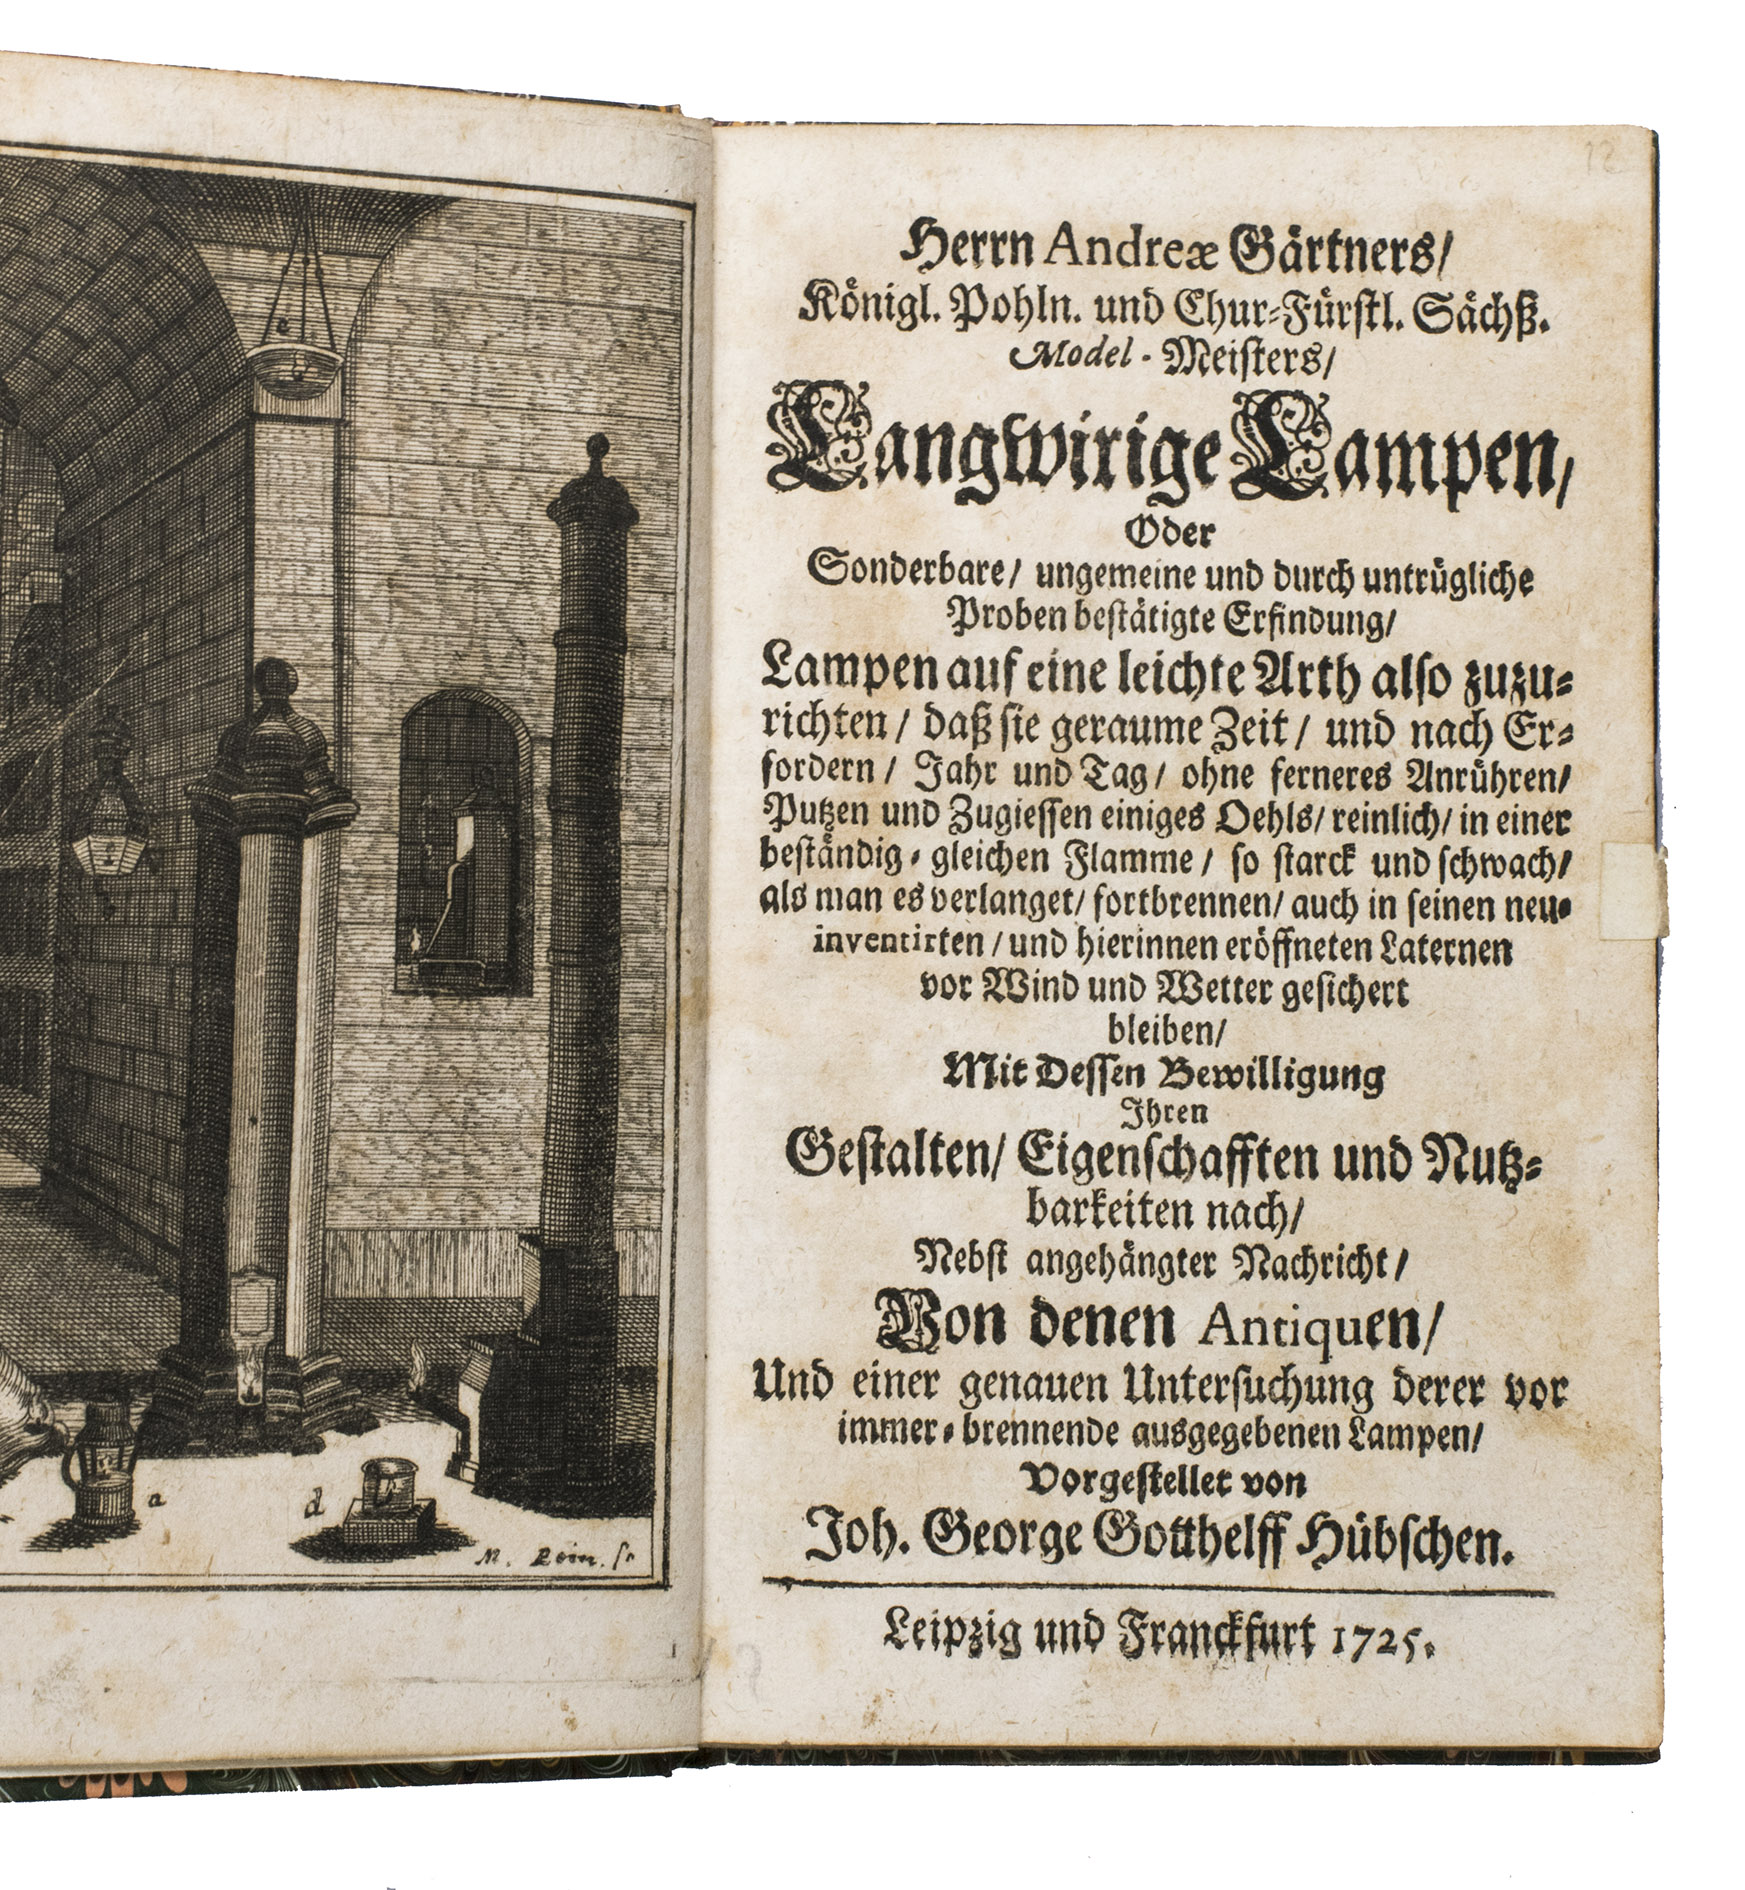 e
a
d
12
Herrn Andreæ Gärtners/
Königl. Pohln. und Chur-Fürstl. Sächß.
Model-Meisters/
Langwirige Lampen,
Oder
Sonderbare/ ungemeine und durch untrügliche
Proben bestätigte Erfindung/
Lampen auf eine leichte Arth also zuzu-
richten/ daß sie geraume Zeit/ und nach Er-
fordern/ Jahr und Tag/ ohne ferneres Anrühren/
Putzen und Zugiessen einiges Oehls/ reinlich/ in einer
beständig-gleichen Flamme/ so starck und schwach/
als man es verlanget/ fortbrennen/ auch in seinen neu-
inventirten/ und hierinnen eröffneten Laternen
vor Wind und Wetter gesichert
bleiben/
Mit Dessen Bewilligung
Ihren
Gestalten/ Eigenschafften und Nutz-
barkeiten nach/
Nebst angehängter Nachricht/
Von denen Antiquen/
Und einer genauen Untersuchung derer vor
immer-brennende ausgegebenen Lampen/
Vorgestellet von
Joh. George Gotthelff Hübschen.
Leipzig und Franckfurt 1725.